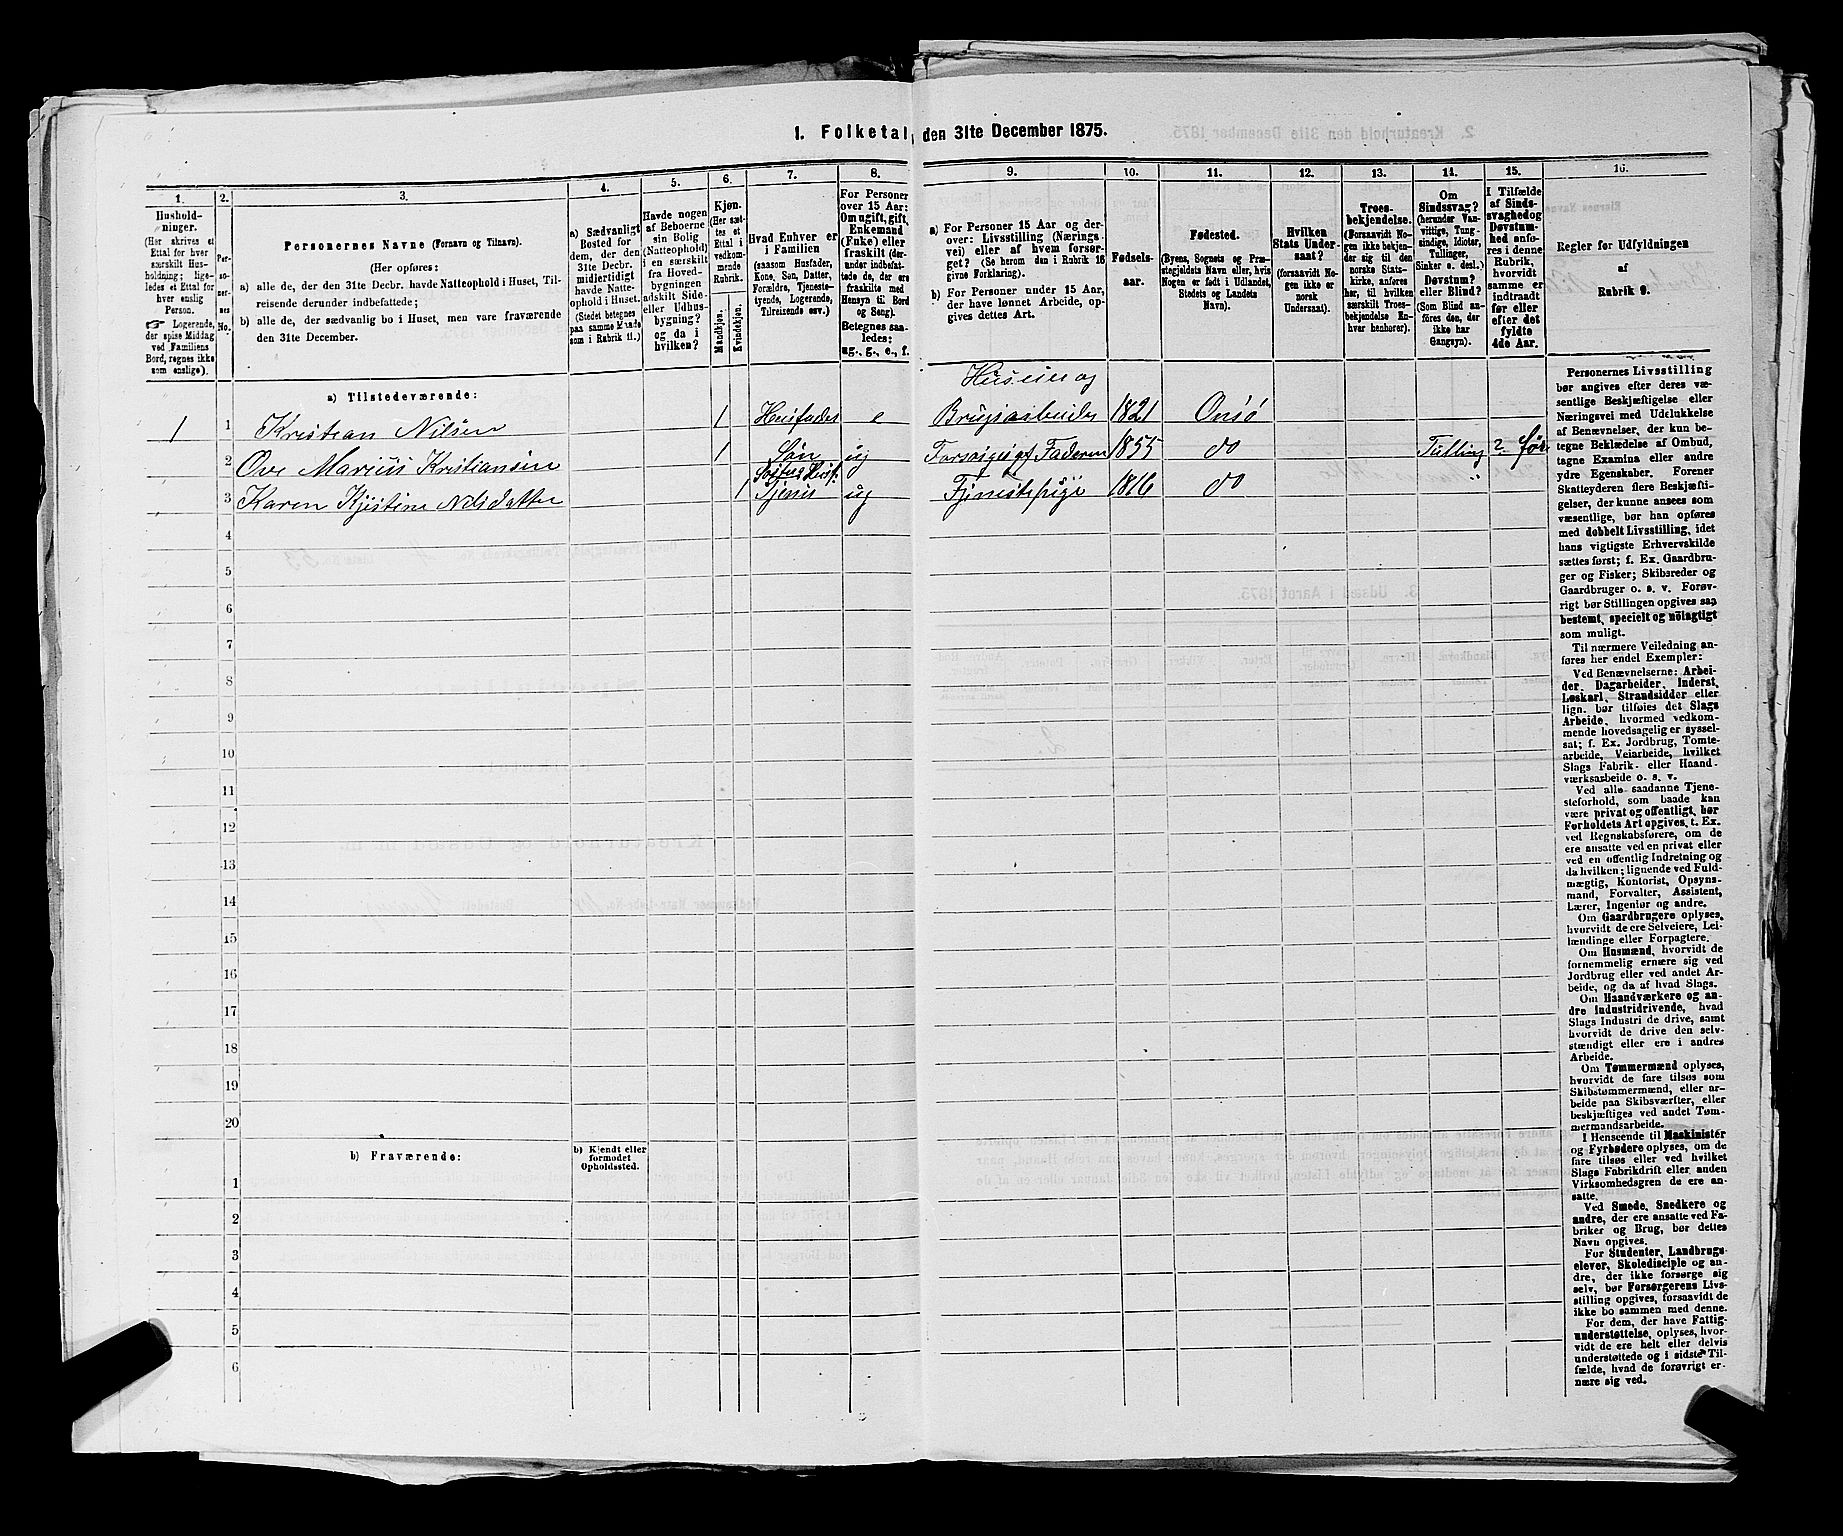 1. Folketal den 31te December 1875.
1.
Hushold-
ninger.
(Her skrives et
Ettal for hver
særskilt Hus-
holdning; lige-
ledes et Ettal for
hver enslig
Person.
Logerende,
der spise Middag
ved Familiens
Bord, regnes ikke
som enslige).
2.
Per-
so-
ner-
nes
No.
3.
Personernes Navne (Fornavn og Tilnavn).
(Her opføres:
a) alle de, der den 31te Decbr. havde Natteophold i Huset, Til-
reisende derunder indbefattede;
b) alle de, der sædvanlig bo i Huset, men vare fraværende
den 31te December.
4.
a) Sædvanligt
Bosted for
dem, der den
31te Decbr.
midlertidigt
havde Natte-
ophold i Huset.
(Stedet betegnes
paa samme Maade
som i Rubrik 11.)
5.
Havde nogen
af Beboerne
sin Bolig
(Natteophold)
i en særskilt
fra Hoved-
bygningen
adskilt Side-
eller Udhus-
bygning?
og da i
hvilken?
6.
Kjøn.
(Her sæt-
tes et
Ettal i
vedkom-
mende
Rubrik.
Mandkjøn.
Kvindekjøn.
7.
Hvad Enhver er
i Familien
(saasom Husfader,
Kone, Søn, Datter,
Forældre, Tjeneste-
tyende, Logerende,
Tilreisende osv.)
8.
For Personer
over 15 Aar:
Om ugift, gift,
Enkemand
(Enke) eller
fraskilt (der-
under indbefat-
tede de, der ere
fraskilte med
Hensyn til Bord
og Seng).
Betegnes saa-
ledes:
ug., g., e., f.
9.
a) For Personer 15 Aar og der-
over: Livsstilling (Nærings-
vei) eller af hvem forsør-
get? (Se herom den i Rubrik 16
givne Forklaring).
b) For Personer under 15 Aar,
der have lønnet Arbeide, op-
gives dettes Art.
10.
Fødsels-
aar.
11.
Fødested.
(Byens, Sognets og Præ-
stegjeldets Navn eller, hvis
Nogen er født i Udlandet,
Stedets og Landets
Navn).
12.
Hvilken
Stats Under-
saat?
(forsaavidt No-
gen ikke er
norsk
Undersaat).
13.
Troes-
bekjendelse.
(Forsaavidt No-
gen ikke bekjen-
der sig til den
norske Stats-
kirke, anføres
her, til hvilken
særskilt Troes-
bekjendelse En-
hver henhører).
14.
Om
Sindssvag?
(herunder Van-
vittige, Tung-
sindige, Idioter,
Tullinger,
Sinker o. desl.)
Døvstum?
eller Blind?
(Som Blind an-
føres den, der
ikke har
Gangsyn).
15.
I Tilfælde
af Sinds-
svaghed og
Døvstum-
hed anfø-
res i denne
Rubrik,
hvorvidt
samme er
indtraadt
før eller
efter det
fyldte
4de Aar.
16.
Regler for Udfyldningen
af
Rubrik 9.
a) Tilstedeværende:
Huseier og
1 1 Kristian Nilsen 1 Husfader e Brugsarbeider 1821 Onsø
2 Ove Marius Kristiansen 1 Søn ug Forsørges af Faderen 1855 do Tulling ? før
Husf:
3 Karen Kjestine Nilsdatter 1 Tjenes ug Tjenestepige 1816 do "
4
5
6
7
8
9
10
11
12
13
14
15
16
17
18
19
20
b) Fraværende:
b) Kjendt eller
formodet
Opholdssted.
1
2
3
4
5
6
Personernes Livsstilling
bør angives efter deres væ-
sentlige Beskjæftigelse eller
Næringsvei med Udelukkelse
af Benævnelser, der kun be-
tegne Beklædelse af Ombud,
tagne Examina eller andre
ydre Egenskaber. Forener
Skatteyderen flere Beskjæfti-
gelser, der kunne ansees som
væsentlige, bør han opføres
med dobbelt Livsstilling, idet
hans vigtigste Erhvervskilde
sættes først; f. Ex. Gaardbru-
ger og Fisker; Skibsreder og
Gaardbruger o. s. v. Forøv-
rigt bør Stillingen opgives saa
bestemt, specielt og nöiagtigt
som muligt.
Til nærmere Veiledning an-
føres her endel Exempler:
Ved Benævnelserne: Arbei-
der, Dagarbeider, Inderst,
Løskarl, Strandsidder eller
lign. bør tilføies det Slags
Arbeide, hvormed vedkom-
mende hovedsagelig er syssel-
sat; f. Ex. Jordbrug, Tomte-
arbeide, Veiarbeide, hvilket
Slags Fabrik- eller Haand-
værksarbeide o. s. v.
Ved alle saadanne Tjene-
steforhold, som baade kan
være privat og offentligt, bør
Forholdets Art opgives, t. Ex.
ved Regnskabsførere, om de
ere ansatte ved en privat eller
ved en offentlig Indretning og
da hvilken; lignende ved Fuld-
mægtig, Kontorist, Opsyns-
mand, Forvalter, Assistent,
Lærer, Ingeniør og andre.
Om Gaardbrugere oplyses,
hvorvidt de ere Selveiere, Lei-
lændinge eller Forpagtere.
Om Husmænd, hvorvidt de
fornemmelig ernære sig ved
Jordbrug eller ved andet Ar-
beide, og da af hvad Slags.
Om Haandværkere og an-
dre Industridrivende, hvad
Slags Industri de drive, samt
hvorvidt de drive den selv-
stændigt eller ere i andres
Arbeide.
Om Tømmermænd oplyses,
hvorvidt de fare tilsøs som
Skibstømmermænd, eller ar-
beide paa Skibsværfter, eller
beskjæftiges ved andet Tøm-
mermandsarbeide.
I Henseende til Maskinister
og Fyrbødere oplyses, om de
fare tilsøs eller ved hvilket
Slags Fabrikdrift eller anden
Virksomhedsgren de ere an-
satte.
Ved Smede, Snedkere og
andre, der ere ansatte ved Fa-
briker og Brug, bør dettes
Navn opgives.
For Studenter, Landbrugs-
elever, Skoledisciple og an-
dre, der ikke forsørge sig
selv, bør Forsørgerens Livs-
stilling opgives, forsaavidt de
ikke bo sammen med denne.
For dem, der have Fattig-
understøttelse, oplyses, hvor-
vidt de ere helt eller delvis
understøttede og i sidste Til-
fælde, hvad de forøvrigt er-
nære sig ved.